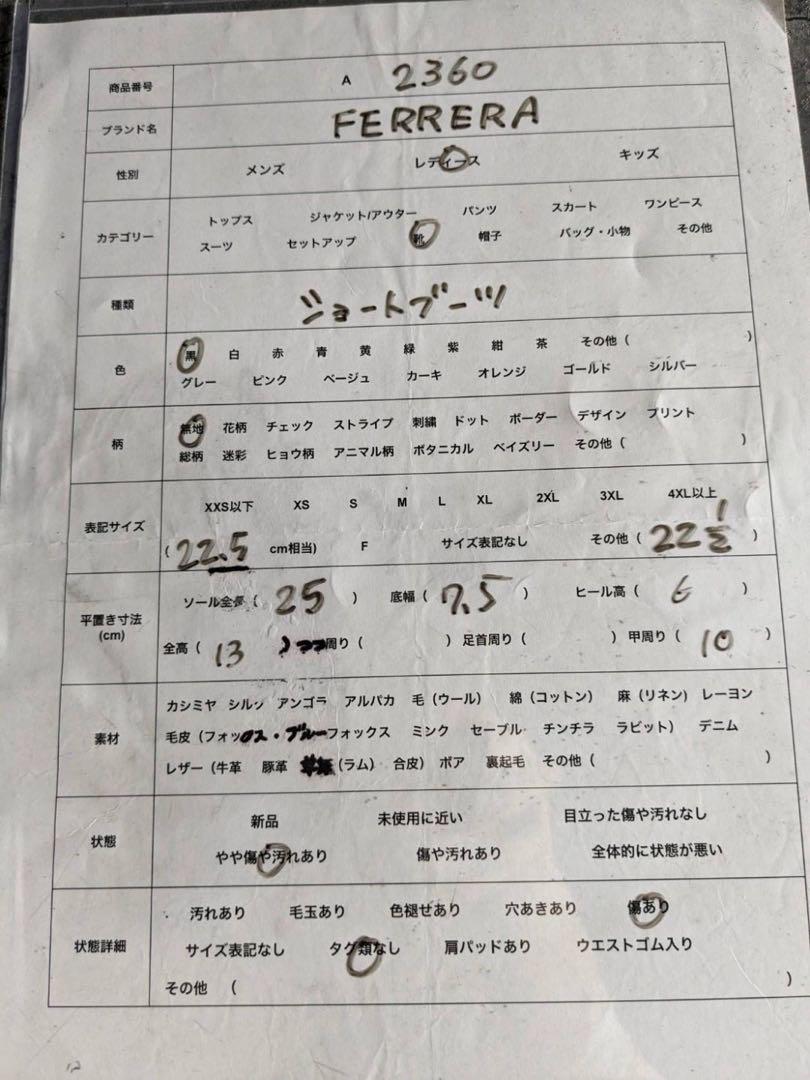 商品番号 A 2360
ブランド名 FERRERA
性別 メンズ レディース キッズ
カテゴリー
トップス ジャケット/アウター パンツ スカート ワンピース
スーツ セットアップ 靴 帽子 バッグ・小物 その他
種類 ショートブーツ
色
黒 白 赤 青 黄 緑 紫 紺 茶 その他 ( )
グレー ピンク ベージュ カーキ オレンジ ゴールド シルバー
柄
無地 花柄 チェック ストライプ 刺繍 ドット ボーダー デザイン プリント
総柄 迷彩 ヒョウ柄 アニマル柄 ボタニカル ペイズリー その他 ( )
表記サイズ
XXS以下 XS S M L XL 2XL 3XL 4XL以上
( 22.5 cm相当) F サイズ表記なし その他 ( 22 1/2 )
平置き寸法
(cm)
ソール全長 ( 25 ) 底幅 ( 7.5 ) ヒール高 ( 6 )
全高 ( 13 ) 周り ( ) 足首周り ( ) 甲周り ( 10 )
素材
カシミヤ シルク アンゴラ アルパカ 毛 (ウール) 綿 (コットン) 麻 (リネン) レーヨン
毛皮 (フォックス・ブルーフォックス ミンク セーブル チンチラ ラビット) デニム
レザー (牛革 豚革 (ラム) 合皮) ボア 裏起毛 その他 ( )
状態
新品 未使用に近い 目立った傷や汚れなし
やや傷や汚れあり 傷や汚れあり 全体的に状態が悪い
状態詳細
汚れあり 毛玉あり 色褪せあり 穴あきあり 傷あり
サイズ表記なし タグ類なし 肩パッドあり ウエストゴム入り
その他 ( )